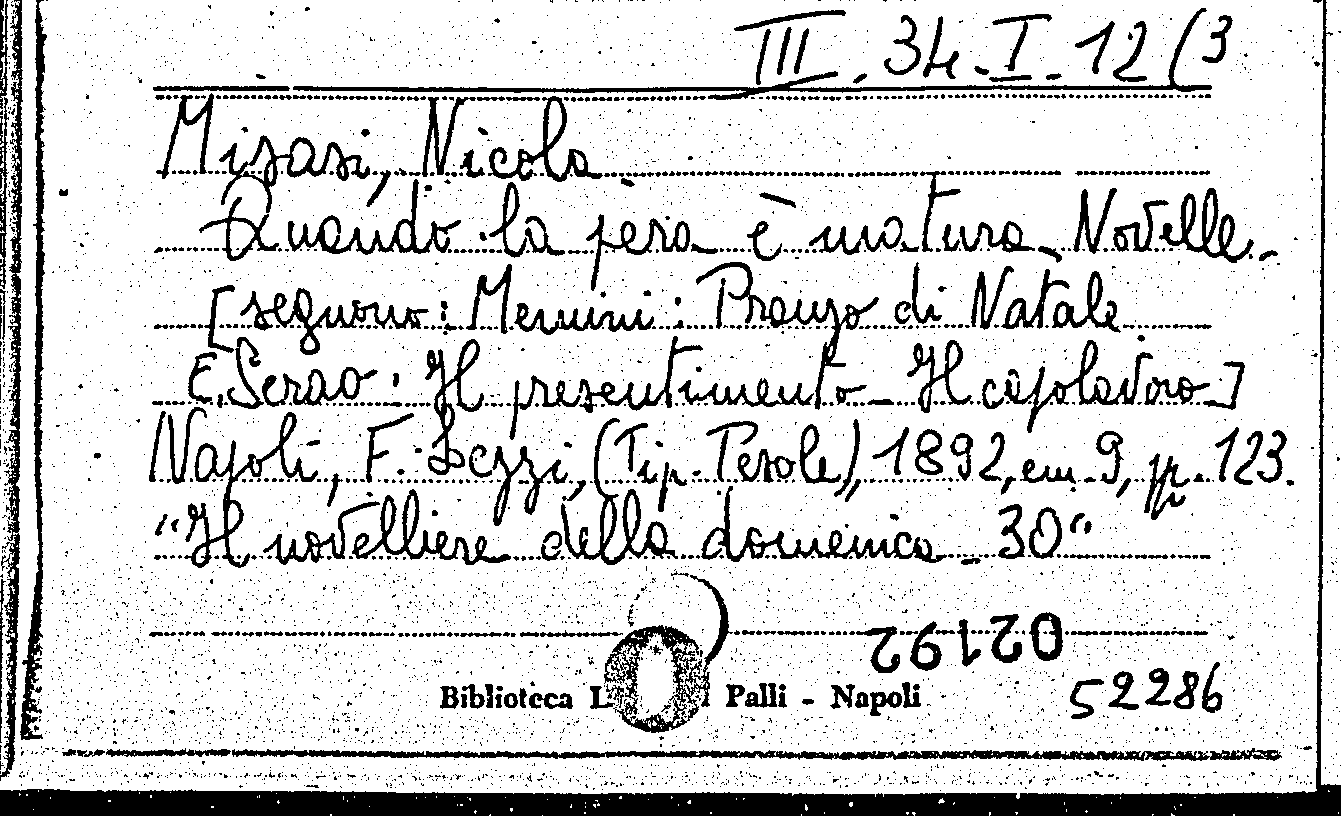 III. 34. I. 12 (3
Misasi, Nicola.
Quando la pera è matura. Novelle.-
[seguono: Memini: Pranzo di Natale
E. Serao: Il presentimento - Il capolavoro]
Napoli, F. Bezzi, (Tip. Pesole), 1892, cm. 9, pp. 123.
"Il novelliere della domenica - 30"
02192
Biblioteca L Palli - Napoli
52286